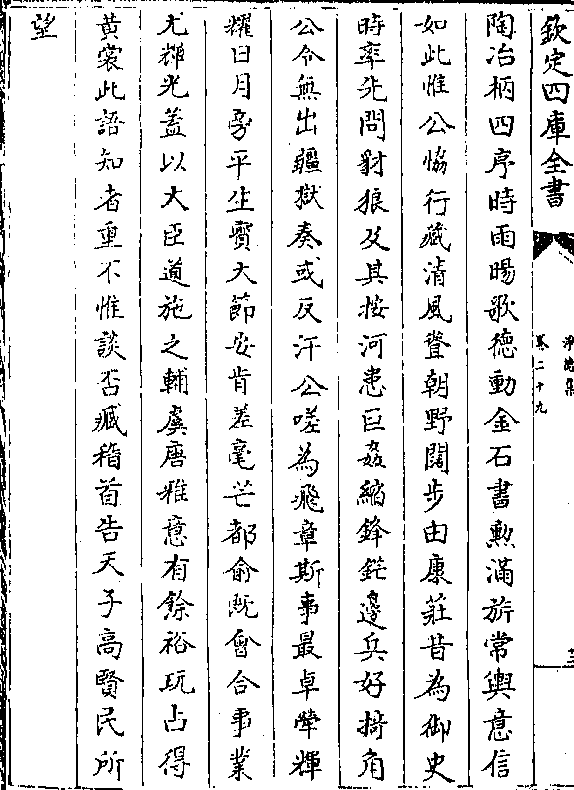 欽定四庫全書
淨德集
卷二十九
陶冶柄四序時雨暘歌德動金石書勲滿旂常輿意信
如此惟公恊行藏清風聳朝野闊步由康莊昔為御史
時率先問豺狼及其按河患巨姦縮鋒鋩邊兵好掎角
公令無出疆獄奏或反汗公嗟為飛章斯事最卓犖輝
耀日月旁平生實大節安肯差毫芒都俞既㑹合事業
尤輝光蓋以大臣道施之輔虞唐雅意有餘裕玩占得
黃裳此語知者重不惟談否臧稽首告天子高賢民所
望